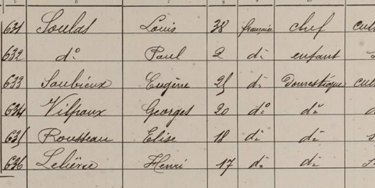 631 Soulas Louis 38 française chef
632 d° Paul 2 d° enfant
633 Saubieux Eugène 25 d° Domestique
634 Vilpoux Georges 20 d° d°
635 Rousseau Elise 18 d° d°
636 Henri 17 d° d°